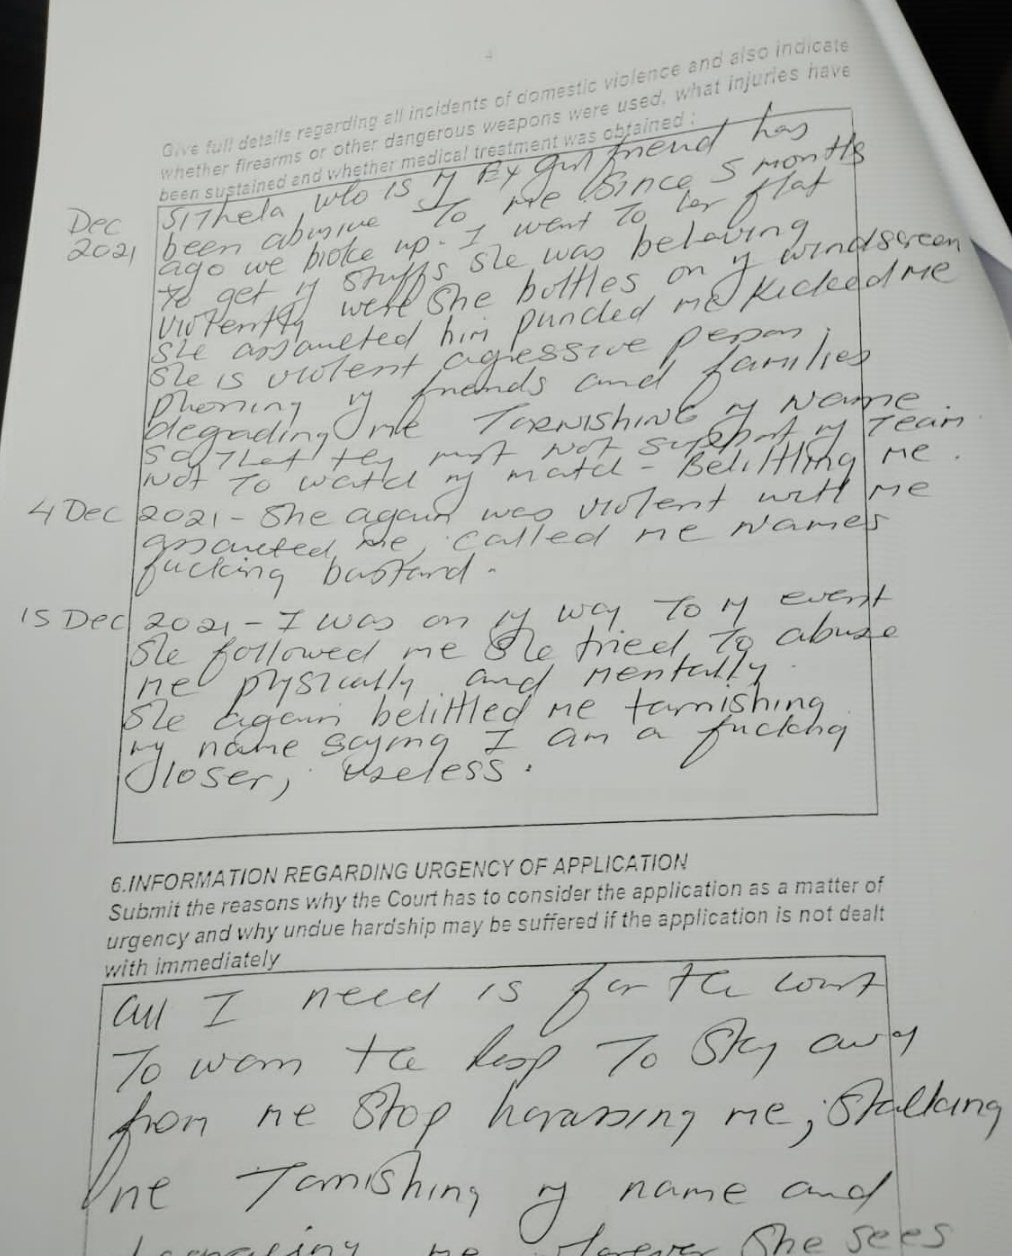 4
Give full details regarding all incidents of domestic violence and also indicate
whether firearms or other dangerous weapons were used, what injuries have
been sustained and whether medical treatment was obtained :
Dec
2021
Sithela, who is my Ex girl friend has
been abusive to me since 5 months
ago we broke up. I went to her flat
to get my stuffs she was behaving
violently were she bottles on my windscreen
she assaulted him punched me kicked me
she is violent agressive person,
phoning my friends and families
degrading me TARNISHING my Name
so that they must not support my Team
not to watch my match - Belittling me.
4 Dec 2021 - She again was violent with me
assaulted me, called me names
fucking bastard.
15 Dec 2021 - I was on my way to my event
she followed me she tried to abuse
me physically and mentally.
She again belittled me tarnishing
my name saying I am a fucking
loser, useless.
6.INFORMATION REGARDING URGENCY OF APPLICATION
Submit the reasons why the Court has to consider the application as a matter of
urgency and why undue hardship may be suffered if the application is not dealt
with immediately
All I need is for the court
To warn the Resp To Stay away
from me Stop harassing me, Stalking
me Tarnishing my name and
me she sees